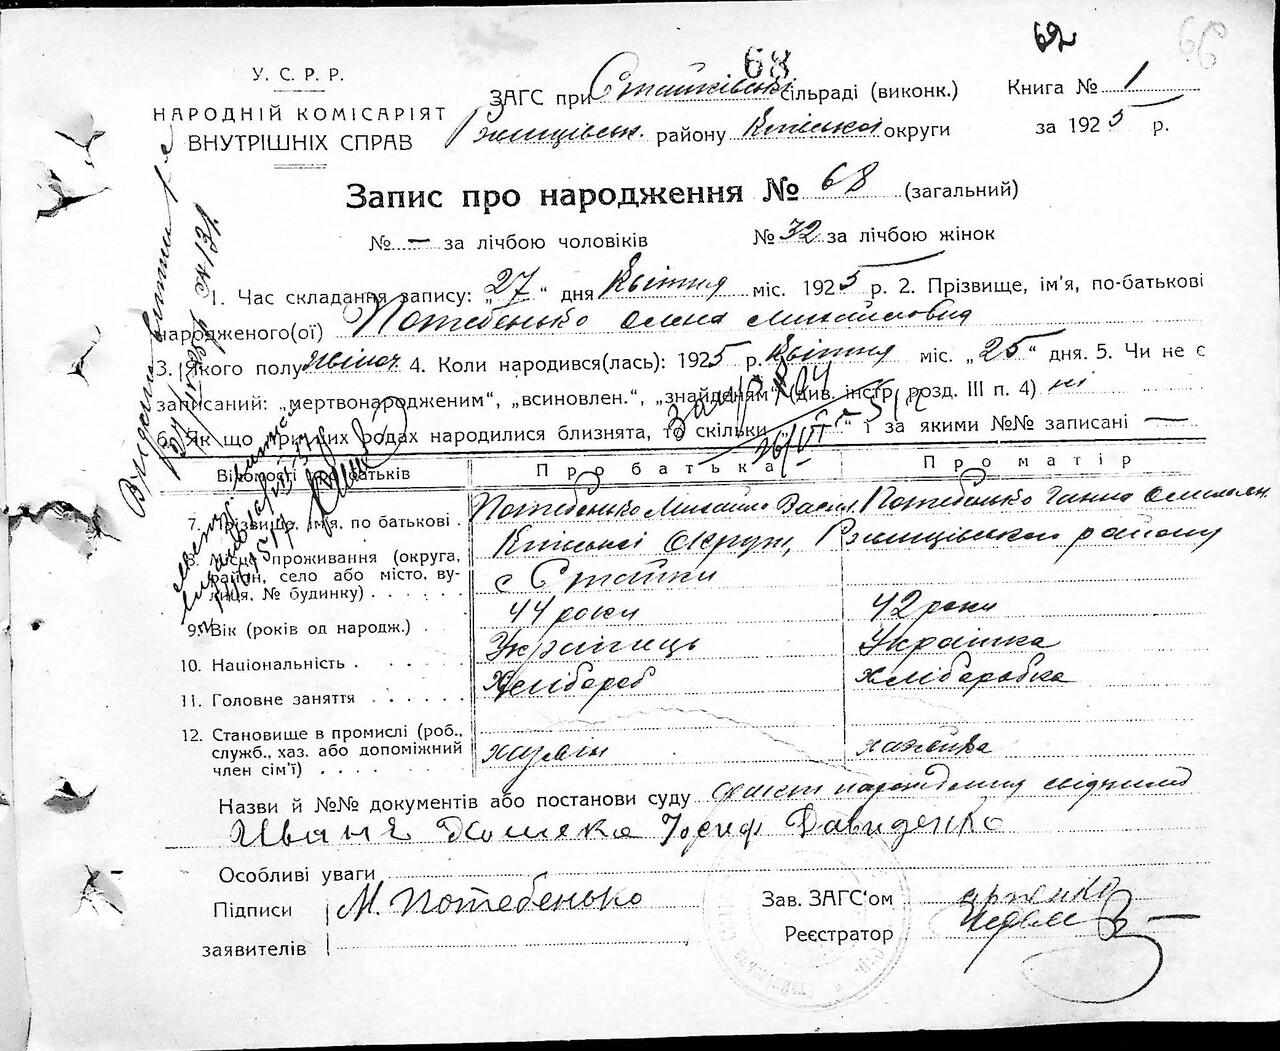 62
66
68
У. С. Р. Р.
НАРОДНІЙ КОМІСАРІЯТ
ВНУТРІШНІХ СПРАВ
ЗАГС при Стайківські сільраді (виконк.)
Ржищівськ. району Київської округи
Книга № 1
за 1925 р.
Запис про народження № 68 (загальний)
№ — за лічбою чоловіків № 32 за лічбою жінок
1. Час складання запису: „27“ дня Квітня міс. 1925 р. 2. Прізвище, ім'я, по-батькові
народженого(ої) Потебенько Олена Михайловна
3. Якого полу жіноч. 4. Коли народився(лась): 1925 р. Квітня міс. „25“ дня. 5. Чи не є
записаний: „мертвонародженим“, „всиновлен.“, „знайденям“ (див. інстр. розд. III п. 4) ні
6. Як що при цих родах народилися близнята, то скільки „ “ і за якими №№ записані —
Відомості про батьків Про батька Про матір
7. Прізвище, ім'я, по батькові . Потебенько Михайло Васил. Потебенько Ганна
8. Місце проживання (округа, район, село або місто, вулиця, № будинку) . . . . . . Київської Округи, Ржищівського району
с Стайки
9. Вік (років од народж.) . 44 роки 42 роки
10. Національність . . . . . Українець Українка
11. Головне заняття . . . . . Хлібороб хліборобка
12. Становище в промислі (роб.,
служб., хаз. або допоміжний
член сім'ї) . . . . . . хазяїн хазяйка
Назви й №№ документів або постанови суду факт народження
Иваня Йосиф Давиденко
Особливі уваги
Підписи М. Потебенько Зав. ЗАГС'ом
заявителів Реєстратор